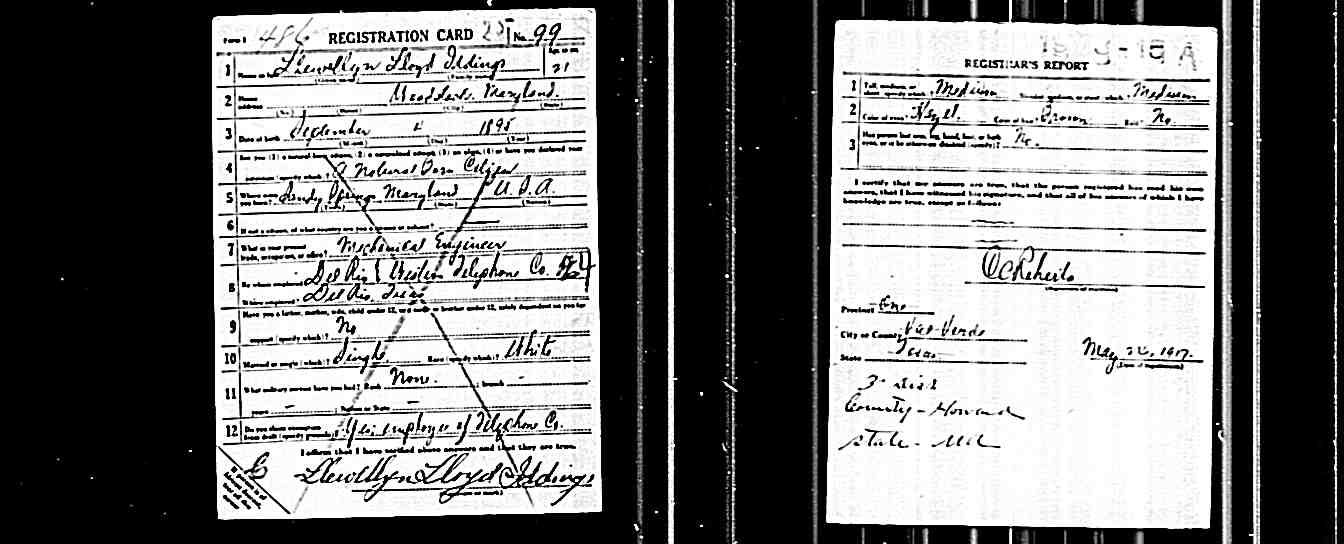 Form 1 486 REGISTRATION CARD No. 99
1 Name in full Llewellyn Lloyd Iddings Age in yrs 21
(Given name) (Family name)
2 Home address Maryland.
(No.) (Street) (City) (State)
3 Date of birth September 4 1895
(Month) (Day) (Year)
4 Are you (1) a natural-born citizen, (2) a naturalized citizen, (3) an alien, (4) or have you declared your
intention (specify which)? A Natural Born Citizen
5 Where were you born? Sandy Springs Maryland U.S.A.
(Town) (State) (Nation)
6 If not a citizen, of what country are you a citizen or subject?
7 What is your present trade, occupation, or office? Mechanical Engineer
8 By whom employed? Del Rio & Western Telephone Co.
Where employed? Del Rio, Texas
9 Have you a father, mother, wife, child under 12, or a sister or brother under 12, solely dependent on you for
support (specify which)? No
10 Married or single (which)? Single Race (specify which)? White
11 What military service have you had? Rank None. ; branch -
years - ; Nation or State -
12 Do you claim exemption from draft (specify grounds)? Yes, employee of Telephone Co.
I affirm that I have verified above answers and that they are true.
Llewellyn Lloyd Iddings
(Signature or mark)
- 15 A
REGISTRAR'S REPORT
1 Tall, medium, or short (specify which)? Medium Slender, medium, or stout (which)? Medium
2 Color of eyes? Hazel. Color of hair? Brown. Bald? No.
3 Has person lost arm, leg, hand, foot, or both eyes, or is he otherwise disabled (specify)? No.
I certify that my answers are true, that the person registered has read his own
answers, that I have witnessed his signature, and that all of his answers of which I have
knowledge are true, except as follows:
(Signature of registrar)
Precinct One
City or County Val Verde
State Texas
May 26, 1917.
(Date of registration)
3 Dist
County - Howard
State - Md